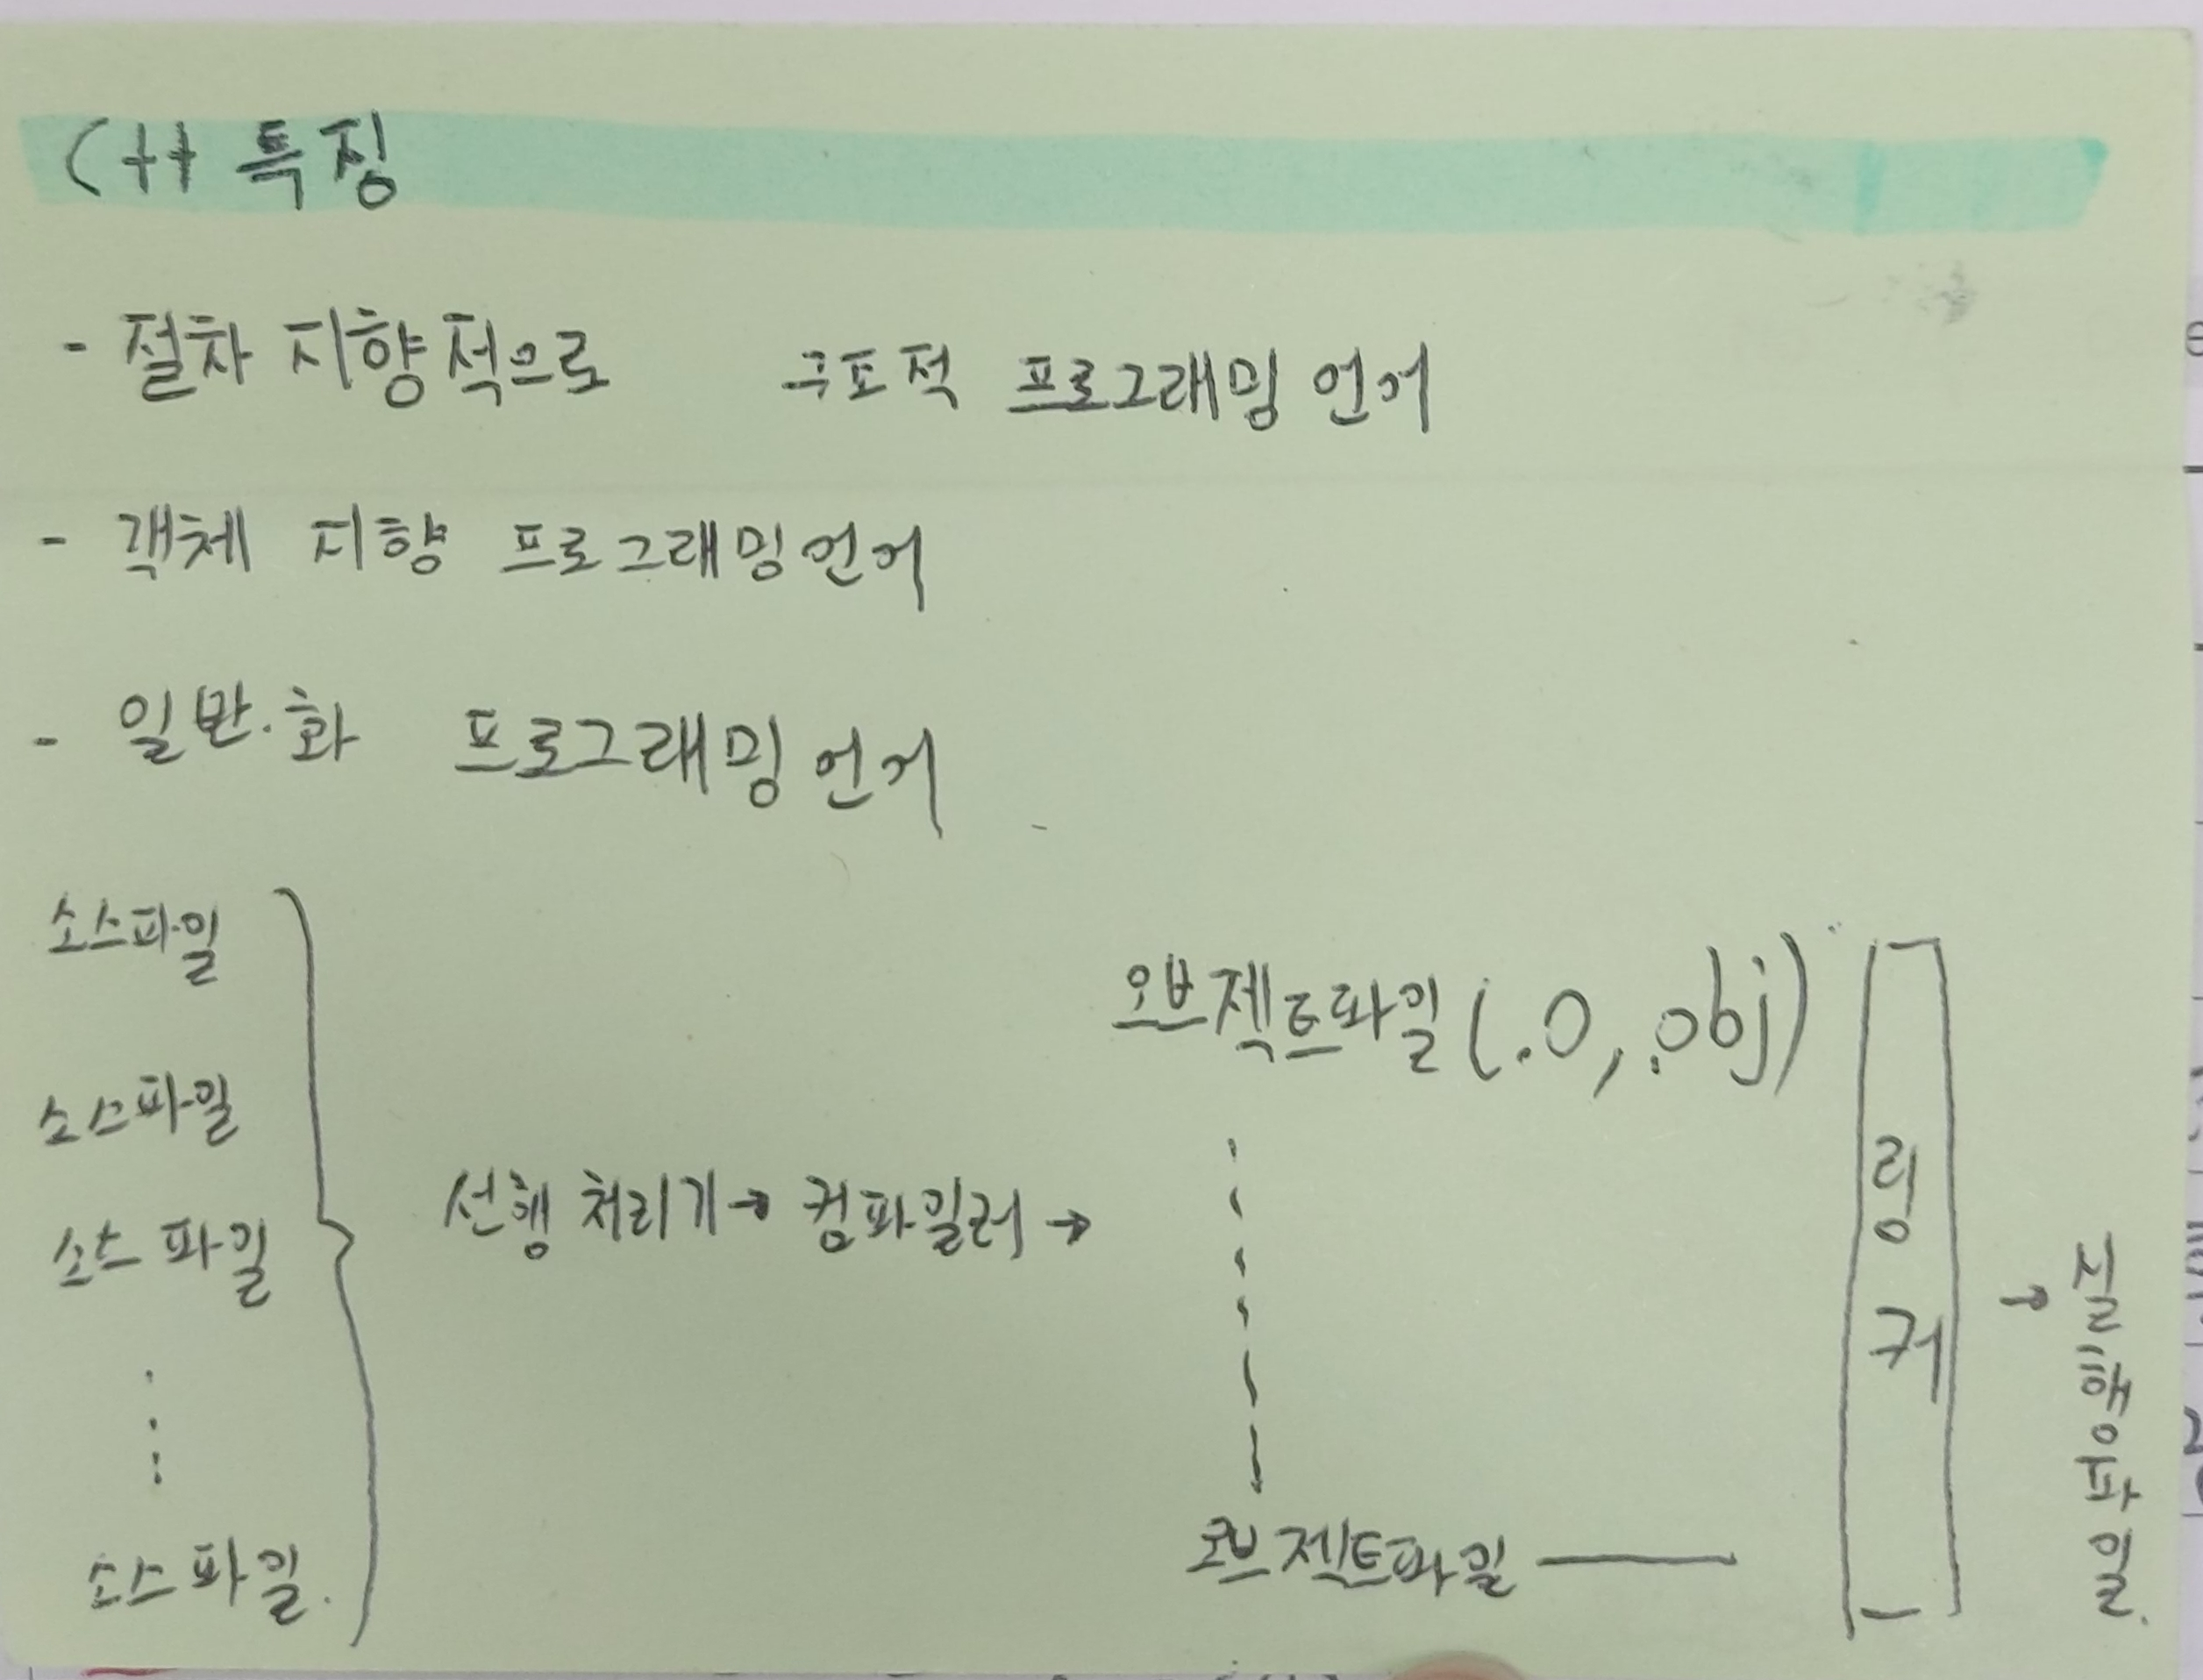 C++ 특징
- 절차 지향적으로 구조적 프로그래밍 언어
- 객체 지향 프로그래밍언어
- 일반화 프로그래밍 언어
소스파일
소스파일
소스파일
소스파일.
선행 처리기 → 컴파일러 →
오브젝트파일(.o, .obj)
오브젝트파일
링커
→ 실행파일.